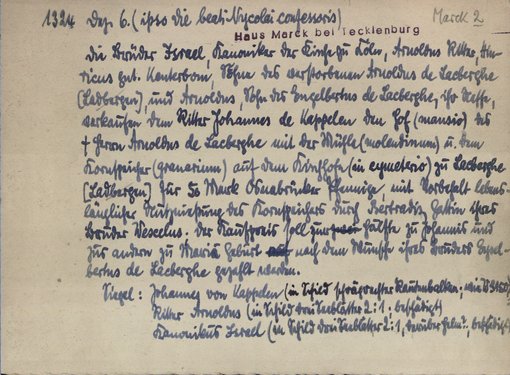 1324 Dez 6. (ipso die beati Nycolai confessoris) Marck 2
Haus Marck bei Tecklenburg
Die Brüder Israel, Kanoniker der Kirche zu Köln, Arnoldus Ritter, Hin-
ricus gnt. Kenterbom, Söhne des verstorbenen Arnoldus de Lacberghe
(Ladbergen), und Arnoldus, Sohn des Engelbertus de Lacberghe, ihr Neffe,
verkaufen dem Ritter Johannes de Kappelen den Hof (mansio) des
† Herrn Arnoldus de Lacberghe mit der Mühle (molendinum) u. dem
Kornspeicher (granarium) auf dem Kirchhofe (in cymeterio) zu Lacberghe
(Ladbergen) für Mark Osnabrücker Pfennige, mit Vorbehalt lebens-
länglicher Nutznießung des Kornspeichers durch Bertradis, Gattin ihres
Bruders Wescelus. Der Kaufpreis soll zur Hälfte zu Johannis und
zur andern zu Mariä Geburt nach dem Wunsche ihres Bruders Engel-
bertus de Lacberghe gezahlt werden.
Siegel: Johannes von Kappelen (in Schild schrägrechter Rautenbalken; wie
Ritter Arnoldus (in Schild drei Seeblätter 2:1; beschädigt)
Kanonikus Israel (in Schild drei Seeblätter 2:1, darüber Helm?, beschädigt)